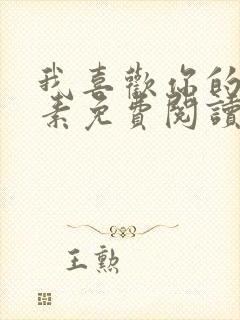 我喜歡你的
素免費閱讀
王勲